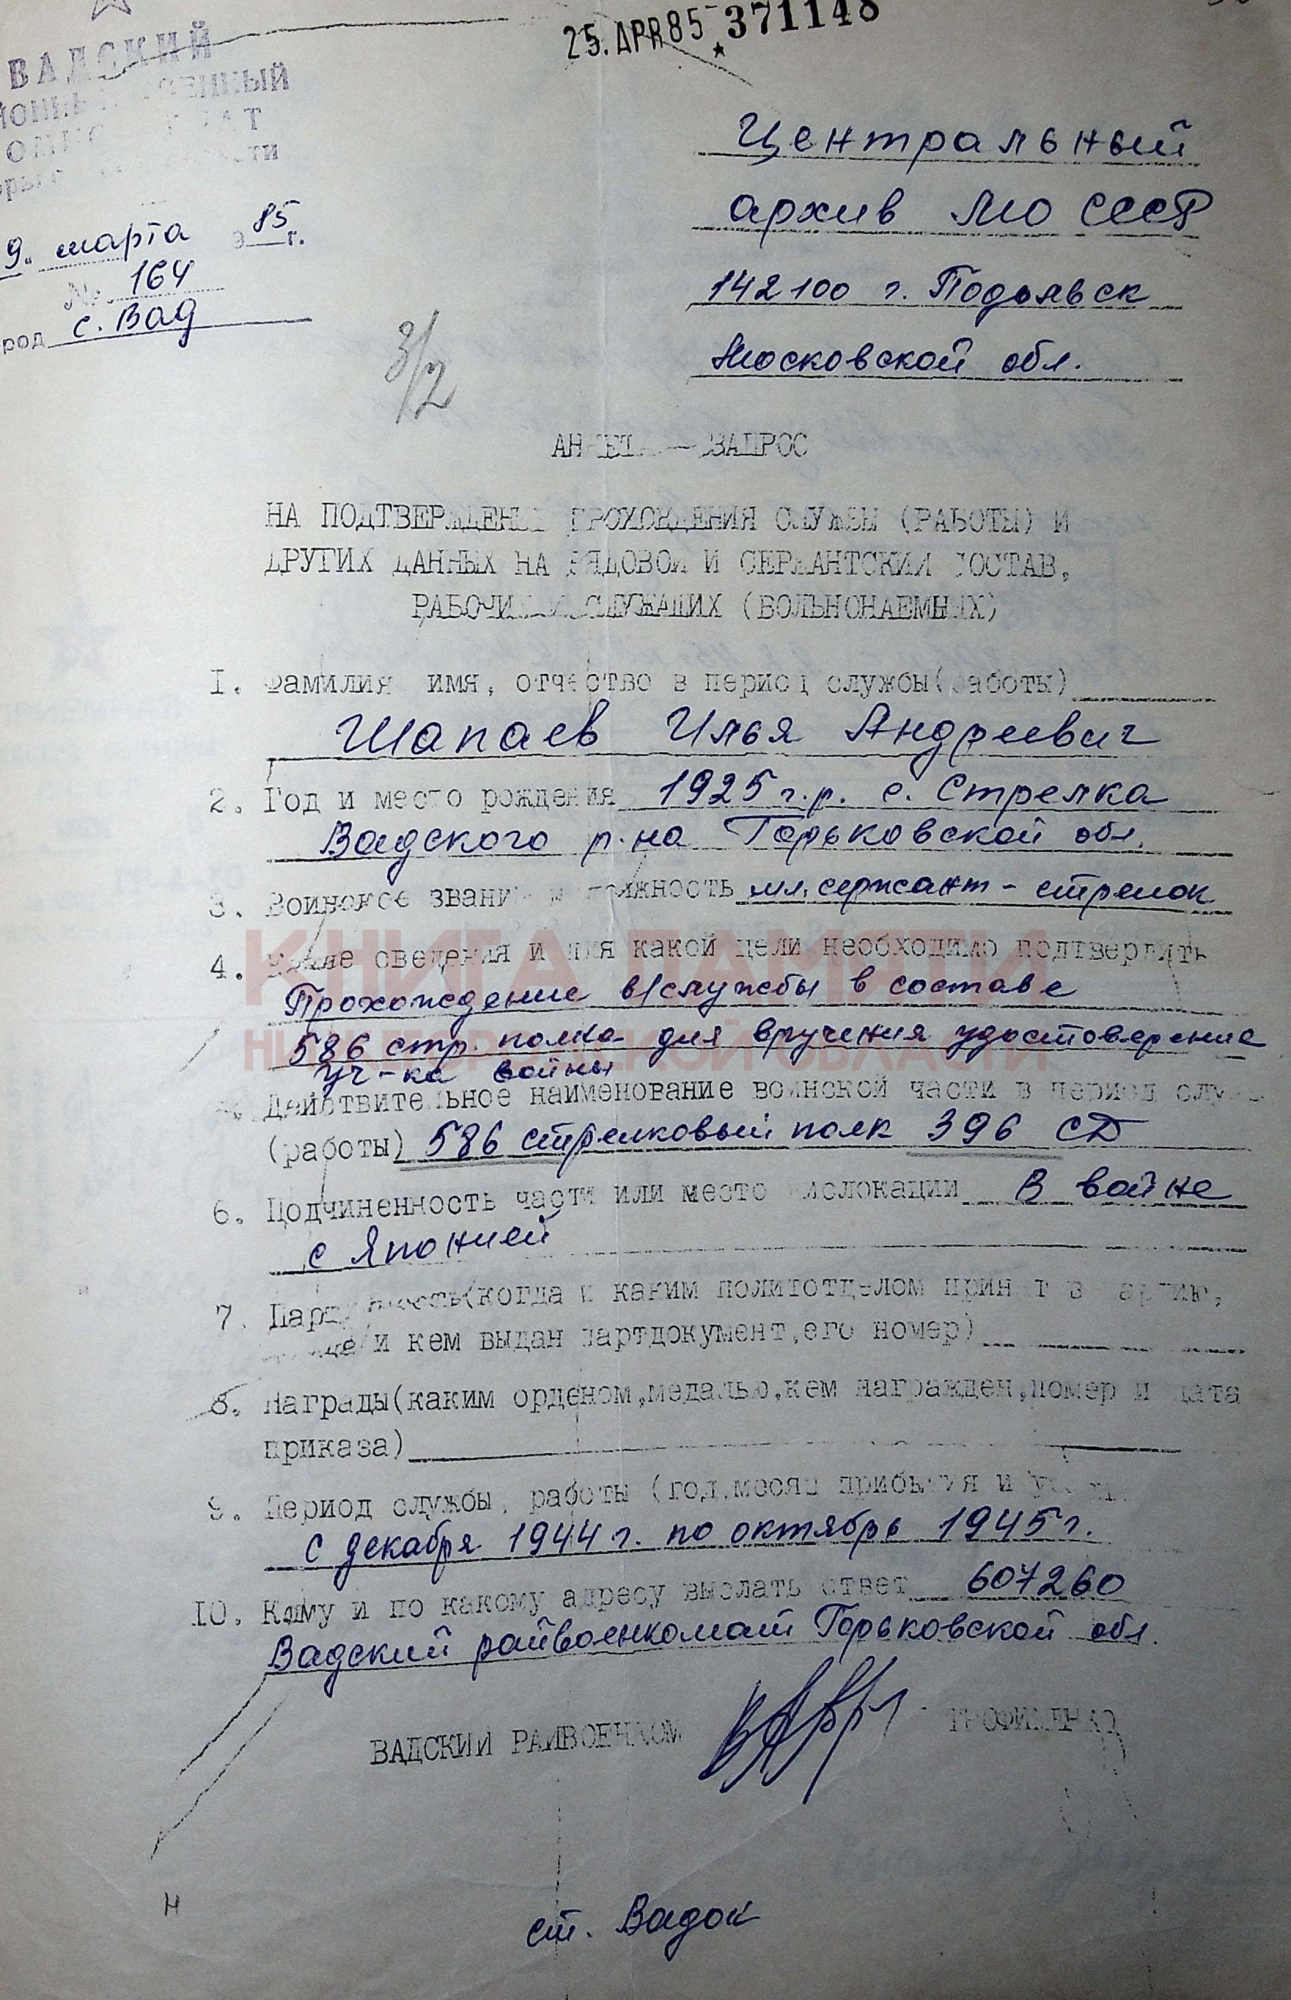 25. APR 85 * 371148
ВАДСКИЙ
9. марта 85 г.
№ 164
род с. Вад
3/2
Центральный
архив МО СССР
142100 г. Подольск
Московской обл.
АНКЕТА — ЗАПРОС
НА ПОДТВЕРЖДЕНИЕ ПРОХОЖДЕНИЯ СЛУЖБЫ (РАБОТЫ) И
ДРУГИХ ДАННЫХ НА РЯДОВОЙ И СЕРЖАНТСКИЙ СОСТАВ,
РАБОЧИХ И СЛУЖАЩИХ (ВОЛЬНОНАЕМНЫХ)
1. Фамилия имя, отчество в период службы(работы)
Шапаев Илья Андреевич
2. Год и место рождения 1925 г.р. с. Стрелка
Вадского р-на Горьковской обл.
3. Воинское звание и должность мл. сержант - стрелок
КНИГА ПАМЯТИ
4. Какие сведения и для какой цели необходимо подтвердить
Прохождение в/службы в составе
НИЖЕГОРОДСКОЙ ОБЛАСТИ
586 стр. полка для вручения удостоверение
уч-ка войны
Действительное наименование воинской части в период служ
(работы) 586 стрелковый полк 396 СД
6. Подчиненность части или место дислокации В войне
с Японией
7. Партийность(когда и каким политотделом принят в партию,
и кем выдан партдокумент,его номер)
8. Награды(каким орденом,медалью,кем награжден,номер и дата
приказа)
9. Период службы, работы (год,месяц прибытия и
с декабря 1944 г. по октябрь 1945 г.
10. Кому и по какому адресу выслать ответ 607260
Вадский райвоенкомат Горьковской обл.
ВАДСКИЙ РАЙВОЕНКОМ
Н
ст. Вадок